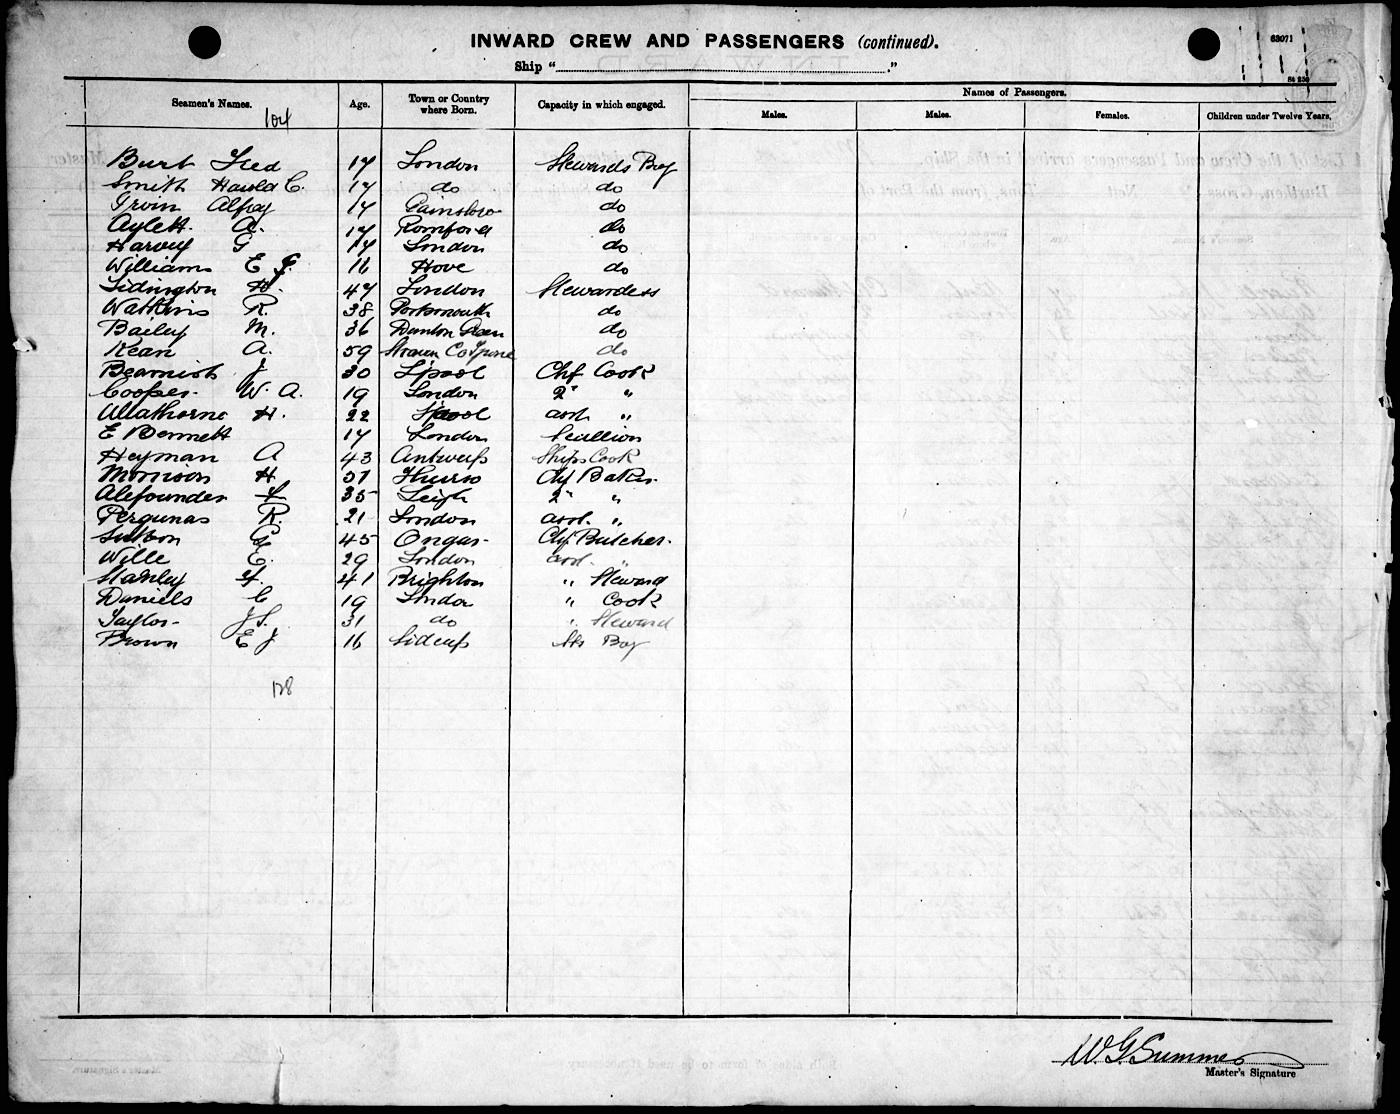 INWARD CREW AND PASSENGERS (continued).
63071
Ship " ."
St 250
Seamen's Names. Age. Town or Country where Born. Capacity in which engaged. Names of Passengers.
Males. Males. Females. Children under Twelve Years.
104
Burt Fred 17 London Stewards Boy
Smith Harold C. 17 do do
Irvin 17 do
Aylett A. 17 Romford do
Harvey G 17 London do
Williams E J. 16 Hove do
Sidington H. 47 London Stewardess
Watkins R. 38 Portsmouth do
Bailey M. 36 Dunton Green do
Kean A. 59 do
Beamish J 30 L'pool Chf Cook
Cooper W. A. 19 London 2" "
Allathorne H. 22 L'pool asst "
E Bennett 17 London Scullion
Heyman A 43 Antwerp Ships Cook
Morrison H Chf Baker
Alefounder F 35 Leigh 2" "
R. 21 London asst. "
Sutton G 45 Ongar Chf Butcher.
Wille E. 29 London asst. "
Stanley F. 41 Brighton " Steward
Daniels C 19 London " Cook
Taylor J S. 31 do " Steward
Brown E J 16 Sidcup Stds Boy
128
W. G. Summers
Master's Signature